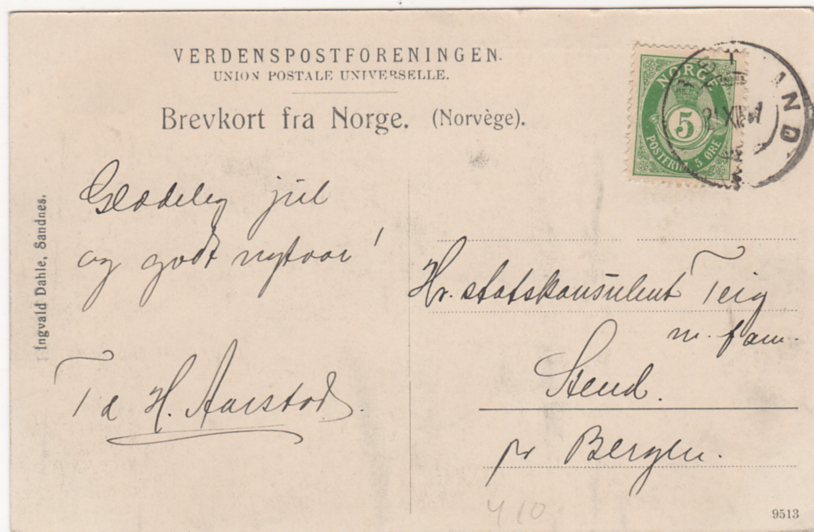 VERDENSPOSTFORENINGEN.
UNION POSTALE UNIVERSELLE.
Brevkort fra Norge. (Norvège).
NORGE
5
POSTFRIM. 5 ØRE
Ingvald Dahle, Sandnes.
Glædelig jul
og godt nytaar!
H. Aarstad.
Hr. statskonsulent Teig
m. fam.
Stend.
pr Bergen.
410
9513